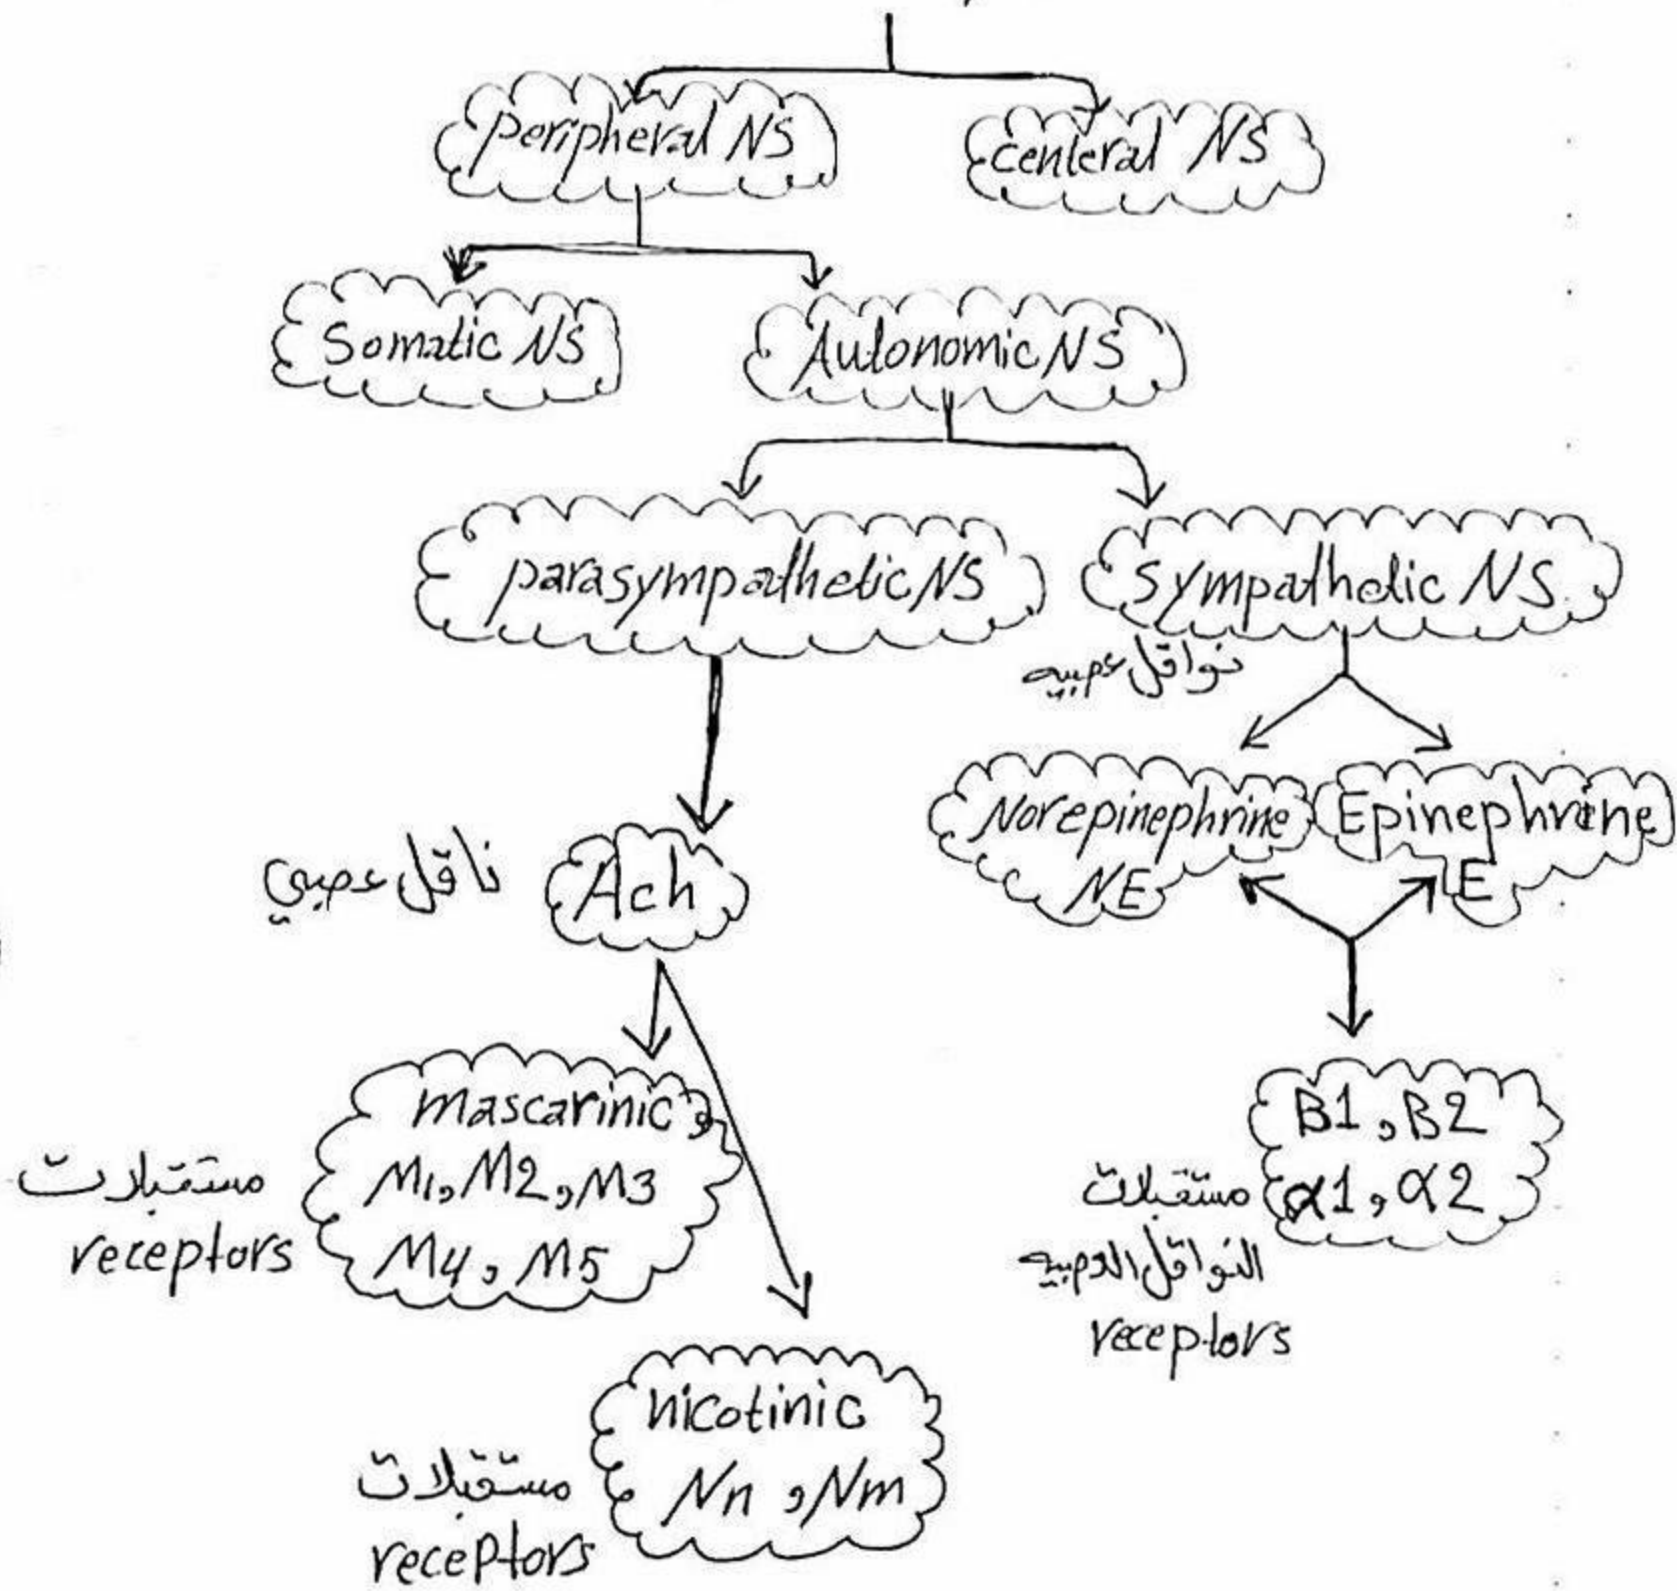 peripheral NS
centeral NS
Somatic NS
Autonomic NS
parasympathetic NS
sympathetic NS
نواقل عصبيه
Norepinephrine
NE
Epinephrine
E
ناقل عصبي
Ach
mascarinic
M1, M2, M3
M4, M5
مستقبلات
receptors
B1, B2
α1, α2
مستقبلات
النواقل العصبيه
receptors
nicotinic
Nn, Nm
مستقبلات
receptors